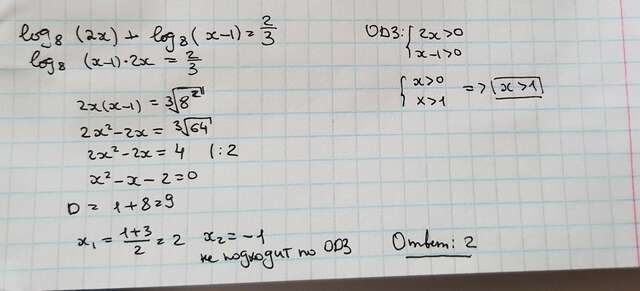 log₈ (2x) + log₈ (x-1) = 2/3
log₈ (x-1)·2x = 2/3
2x(x-1) = ∛8²
2x²-2x = ∛64
2x²-2x = 4 (:2
x²-x-2=0
D = 1+8=9
x₁ = (1+3)/2 = 2 x₂ = -1
не подходит по ОДЗ
ОДЗ: { 2x>0
x-1>0
{ x>0
x>1 => x>1
Ответ: 2